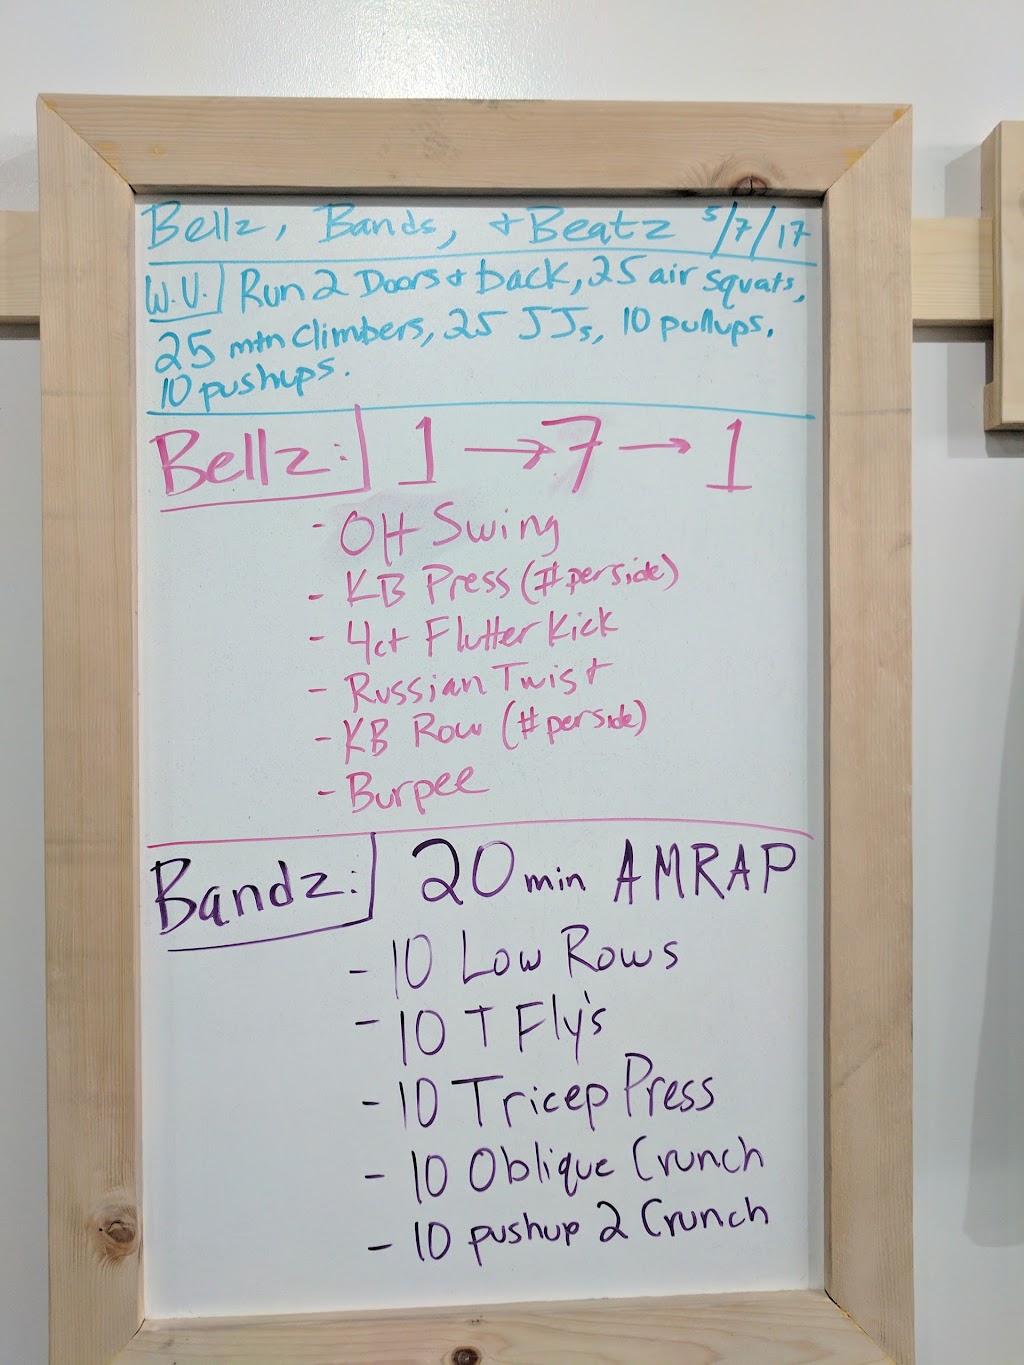 Bellz, Bands, + Beatz 5/7/17
W.U. Run 2 Doors + back, 25 air squats,
25 mtn climbers, 25 JJs, 10 pullups,
10 pushups.
Bellz: 1 → 7 → 1
- OH Swing
- KB Press (# per side)
- 4ct Flutter Kick
- Russian Twist
- KB Row (# per side)
- Burpee
Bandz: 20 min AMRAP
- 10 Low Rows
- 10 T Fly's
- 10 Tricep Press
- 10 Oblique Crunch
- 10 pushup 2 Crunch